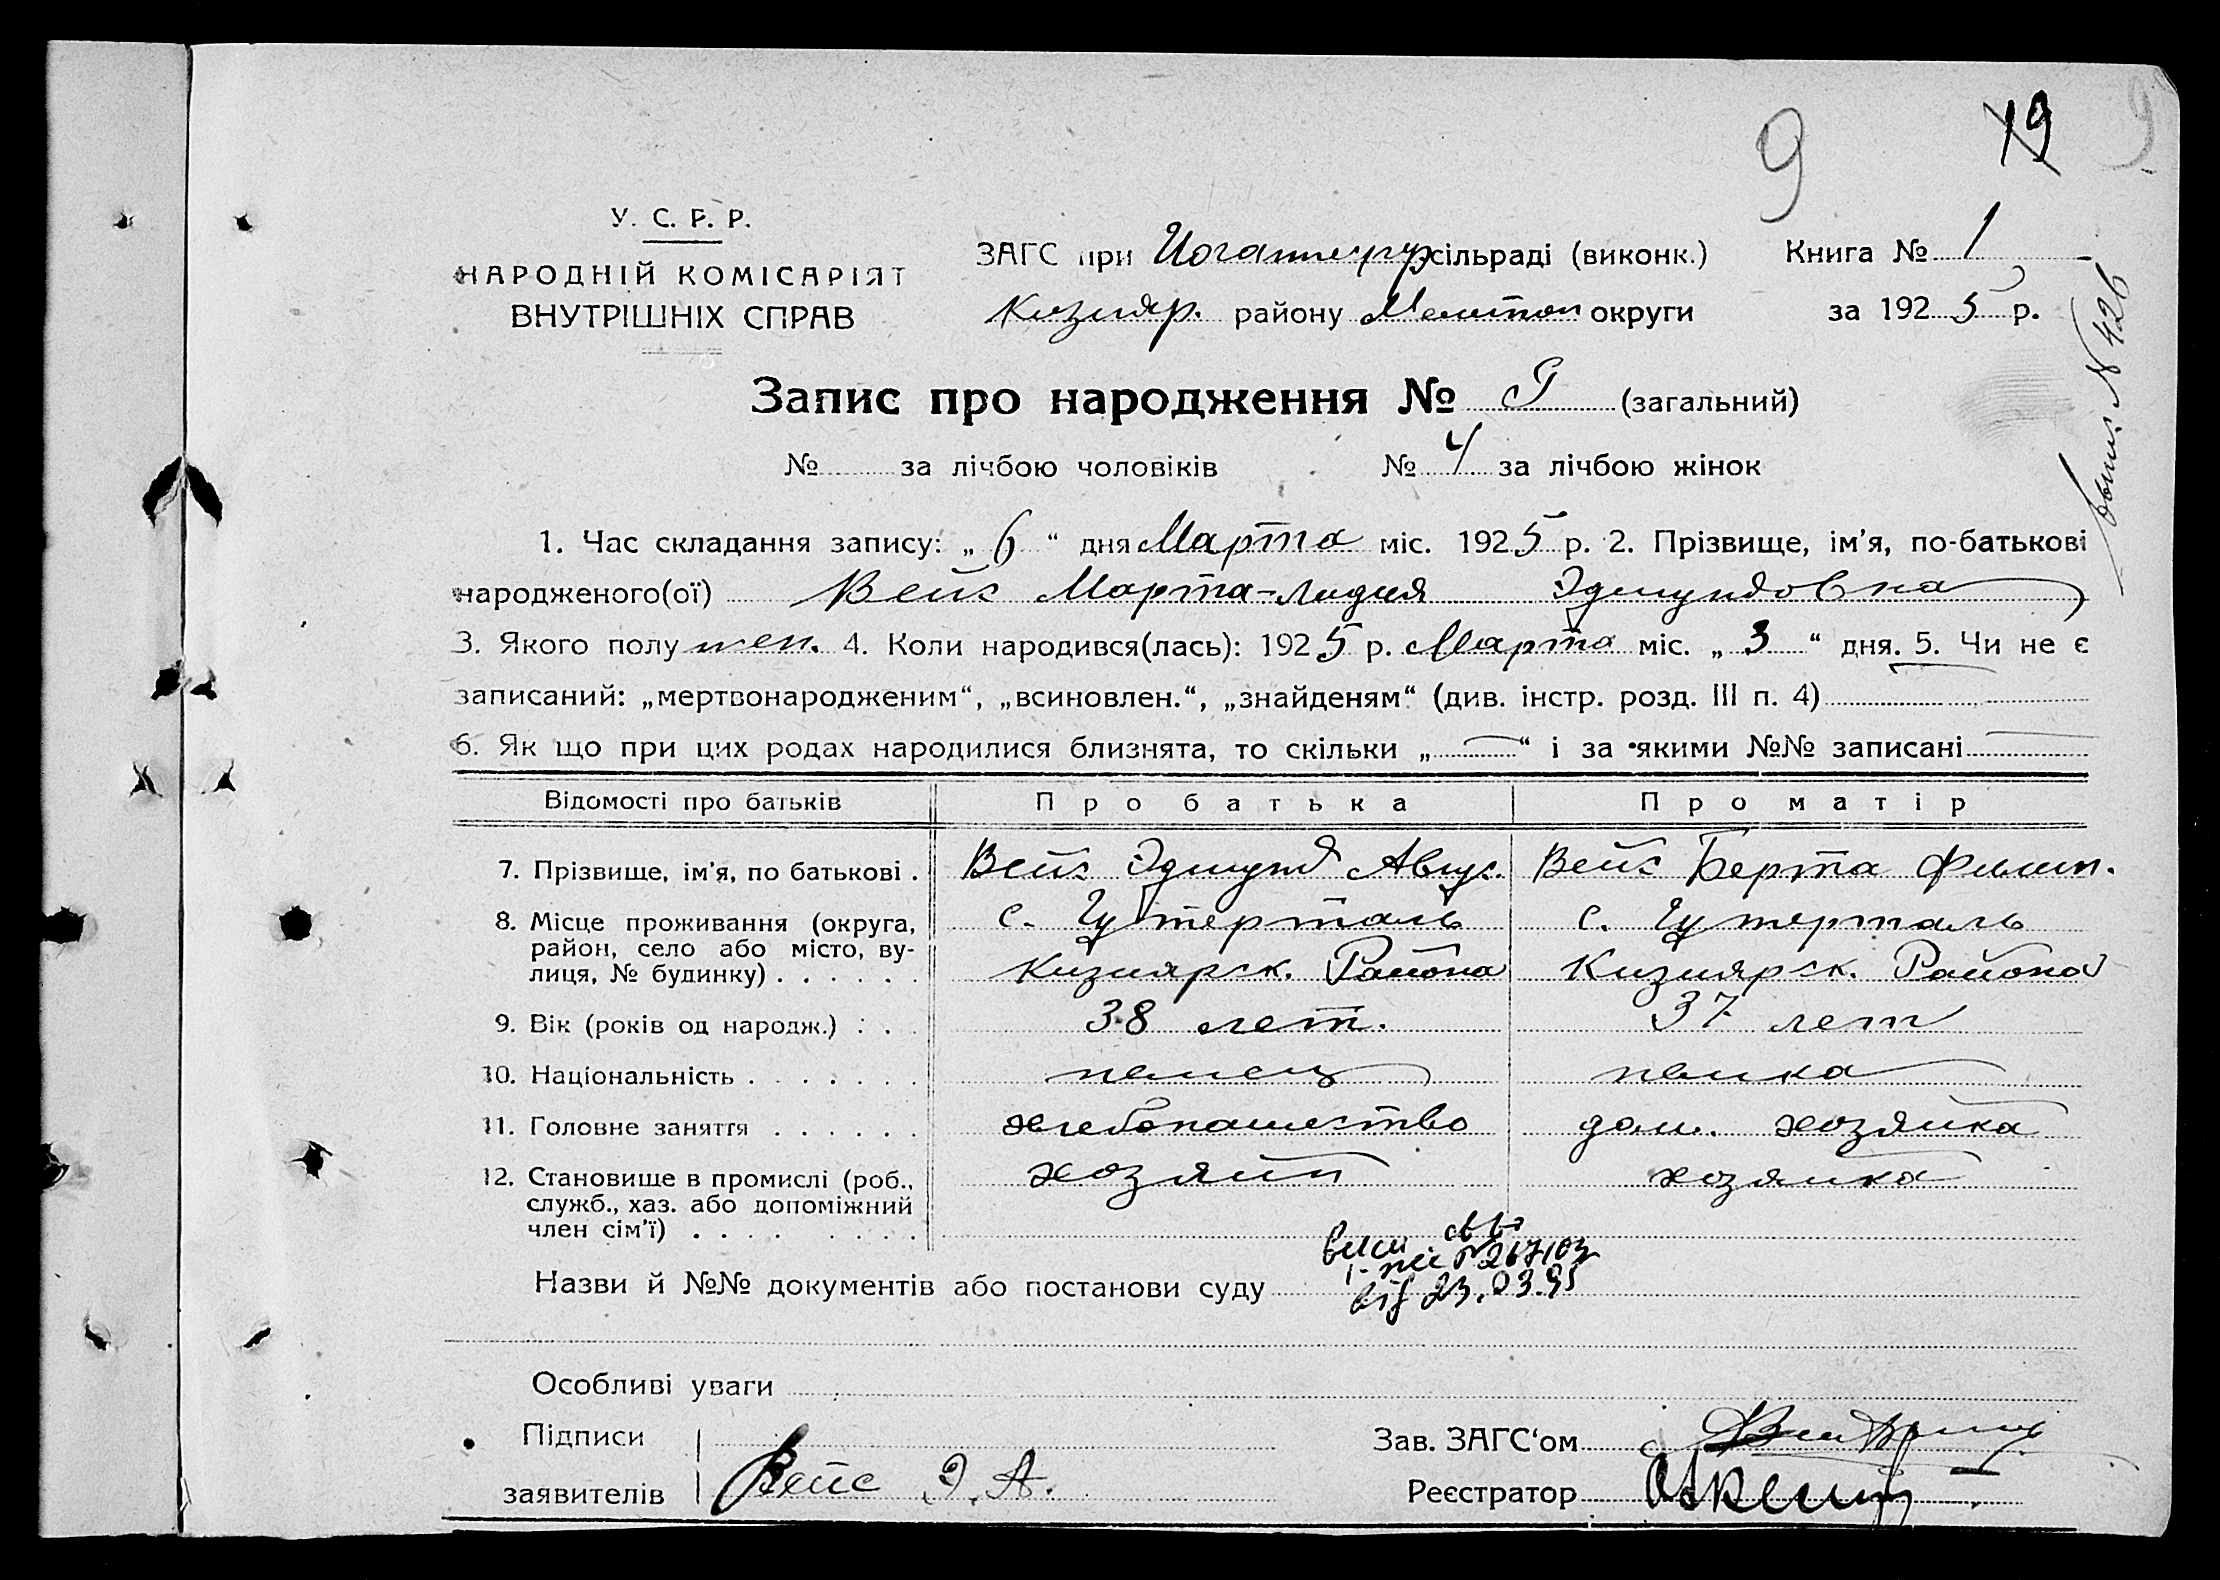 9 19 9
У. С. Р. Р.
НАРОДНІЙ КОМІСАРІЯТ
ВНУТРІШНІХ СПРАВ
ЗАГС при сільраді (виконк.) Книга № 1
Кизияр. району Мелитоп округи за 1925 р.
№ 426
Запис про народження № 9 (загальний)
№ за лічбою чоловіків № 4 за лічбою жінок
1. Час складання запису: „ 6 “ дня Марта міс. 1925 р. 2. Прізвище, ім'я, по-батькові
народженого(ої) Вейс Марта-Лидия Эдмундовна
3. Якого полу жен. 4. Коли народився(лась): 1925 р. Марта міс. „ 3 “ дня. 5. Чи не є
записаний: „мертвонародженим“, „всиновлен.“, „знайденям“ (див. інстр. розд. III п. 4)
6. Як що при цих родах народилися близнята, то скільки „ — “ і за якими №№ записані —
Відомості про батьків Про батька Про матір
7. Прізвище, ім'я, по батькові . Вейс Эдмунд Авгус. Вейс Берта Филип.
8. Місце проживання (округа, район, село або місто, вулиця, № будинку) . . . . . .
с. Гутерталь с. Гутерталь
Кизиярск. Района Кизиярск. Района
9. Вік (років од народж.) . . . 38 лет. 37 лет
10. Національність . . . . . . . немец немка
11. Головне заняття . . . . . . хлебопашество дом. хозяйка
12. Становище в промислі (роб., служб., хаз. або допоміжний член сім'ї) . . . . . . . .
хозяин хозяйка
Назви й №№ документів або постанови суду
від 23.03.95
Особливі уваги
Підписи Зав. ЗАГС'ом
заявителів Вейс Э. А. Реєстратор